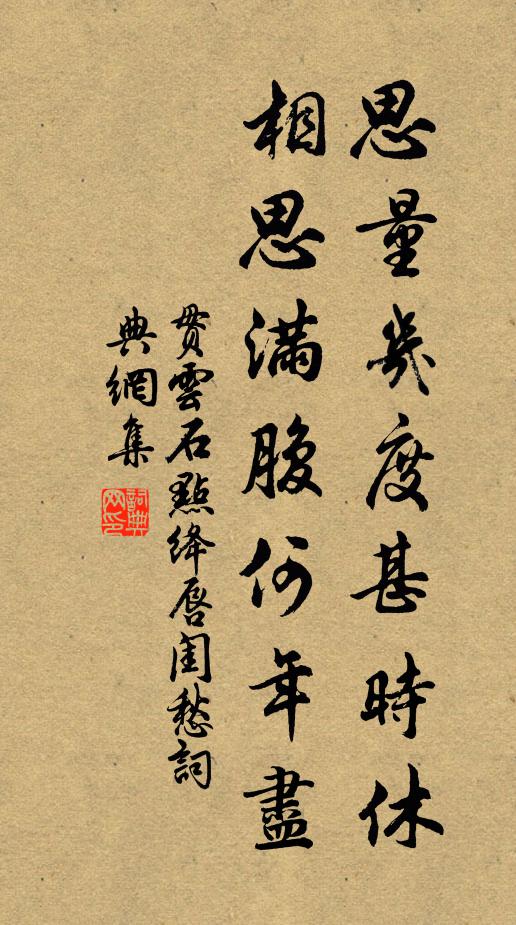 思量幾度甚時休
相思滿腹何年盡
貫雲石點絳唇閨愁詞
典網集
詞典網印